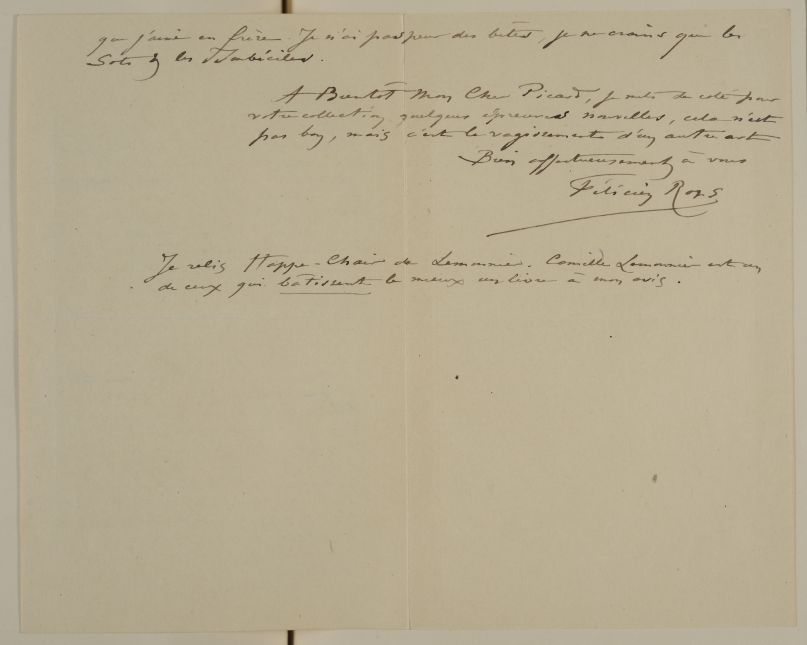 que j'aime en frère. Je n'ai pas peur des bêtes, je ne crains que les
Sots & les Imbéciles.
A Bientôt Mon Cher Picard, je mets de côté pour
votre collection quelques épreuves nouvelles, cela n'est
pas bon, mais c'est le vagissement d'un autre art
Bien affectueusement à vous
Félicien Rops
Je relis Happe-Chair de Lemonnier. Camille Lemonnier est un
de ceux qui bâtissent le mieux un livre à mon avis.